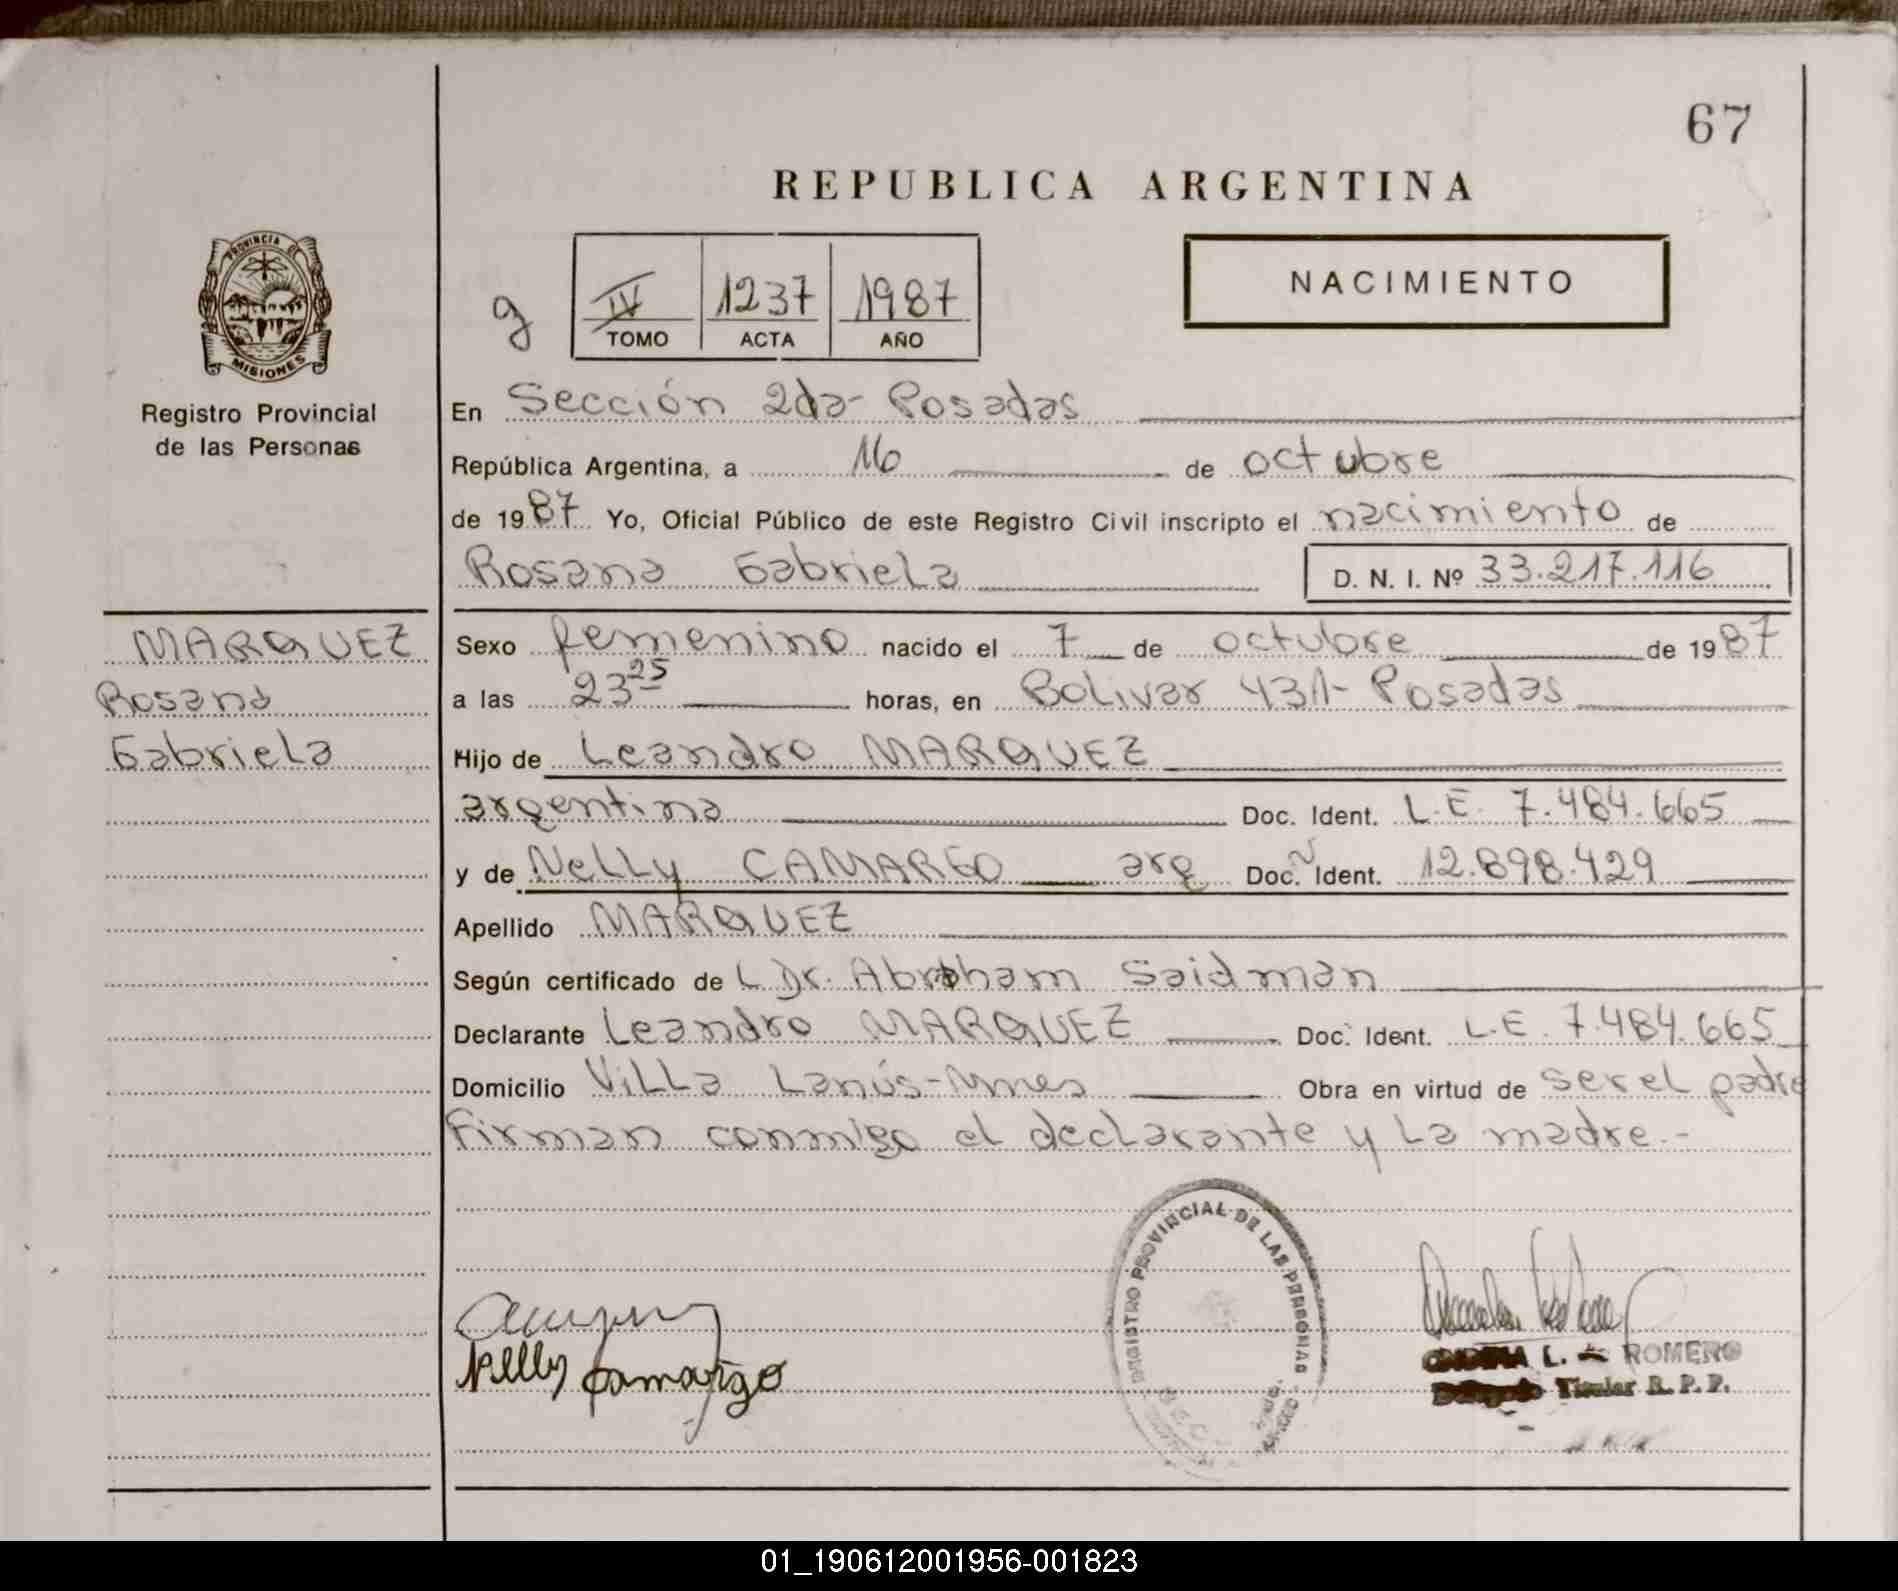 67
REPUBLICA ARGENTINA
PROVINCIA DE
MISIONES
Registro Provincial
de las Personas
g
IV 1237 1987
TOMO ACTA AÑO
NACIMIENTO
En Sección 2da- Posadas
República Argentina, a 16 de octubre
de 1987 Yo, Oficial Público de este Registro Civil inscripto el nacimiento de
Rosana Gabriela D. N. I. Nº 33.217.116
MARQUEZ
Rosana
Gabriela
Sexo femenino nacido el 7 de octubre de 1987
a las 23 25 horas, en Bolivar 431- Posadas
Hijo de Leandro MARQUEZ
argentina Doc. Ident. L.E. 7.484.665
y de Nelly CAMARGO arg Doc. Ident. 12.898.429
Apellido MARQUEZ
Según certificado de L Dr. Abraham Saidman
Declarante Leandro MARQUEZ Doc. Ident. L.E. 7.484.665
Domicilio Villa Lanús-Mnes Obra en virtud de ser el padre
Firman conmigo el declarante y La madre.-
REGISTRO PROVINCIAL DE LAS PERSONAS
Nelly Camargo
L. de ROMERO
Delegado Titular R. P. P.
01_190612001956-001823